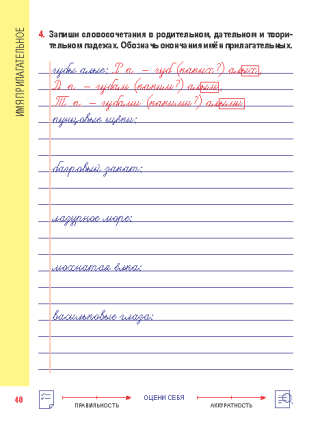 ИМЯ ПРИЛАГАТЕЛЬНОЕ
4. Запиши словосочетания в родительном, дательном и твори-
тельном падежах. Обозначь окончания имён прилагательных.
губы алые: Р. п. – губ (каких?) алых,
Д. п. – губам (каким?) алым,
Т. п. – губами (какими?) алыми.
пунцовые щёки:
багровый закат:
лазурное море:
мохнатая ёлка:
васильковые глаза:
40
ПРАВИЛЬНОСТЬ
ОЦЕНИ СЕБЯ
АККУРАТНОСТЬ